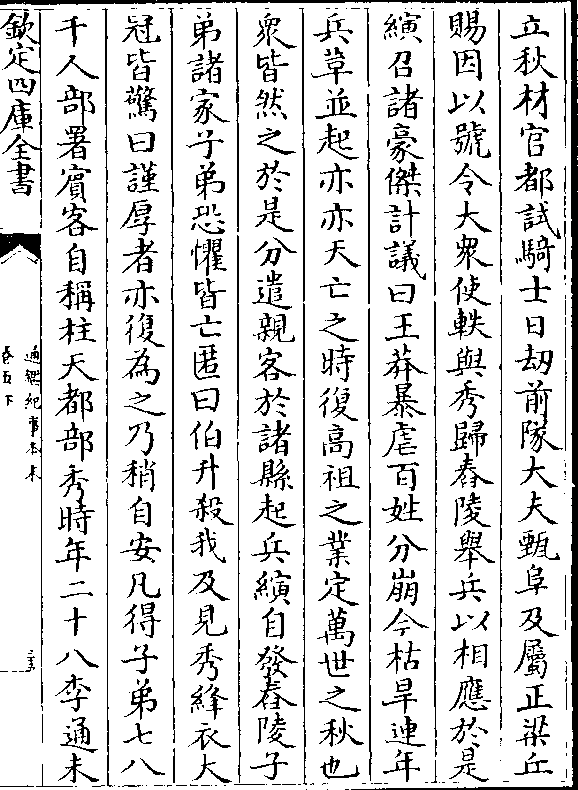 立秋材官都試騎士日刼前隊大夫甄阜及屬正梁丘
賜因以號令大衆使軼與秀歸舂陵舉兵以相應於是
縯召諸豪傑計議曰王莽暴虐百姓分崩今枯旱連年
兵革並起亦亦天亡之時復高祖之業定萬世之秋也
衆皆然之於是分遣親客於諸縣起兵縯自發舂陵子
弟諸家子弟恐懼皆亡匿曰伯升殺我及見秀絳衣大
冠皆驚曰謹厚者亦復為之乃稍自安凡得子弟七八
千人部署賔客自稱柱天都部秀時年二十八李通未
欽定四庫全書
通鑑紀事本末
卷五下